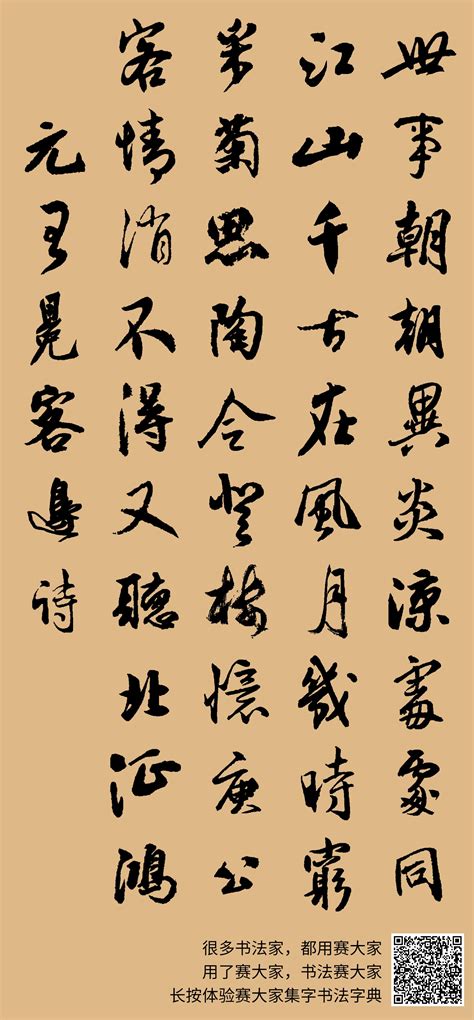 世事朝朝異炎涼處處同
江山千古在風月幾時窮
采菊思陶令登樓憶庾公
客情消不得又聽北征鴻
元王冕客邊诗
很多书法家，都用赛大家
用了赛大家，书法赛大家
长按体验赛大家集字书法字典